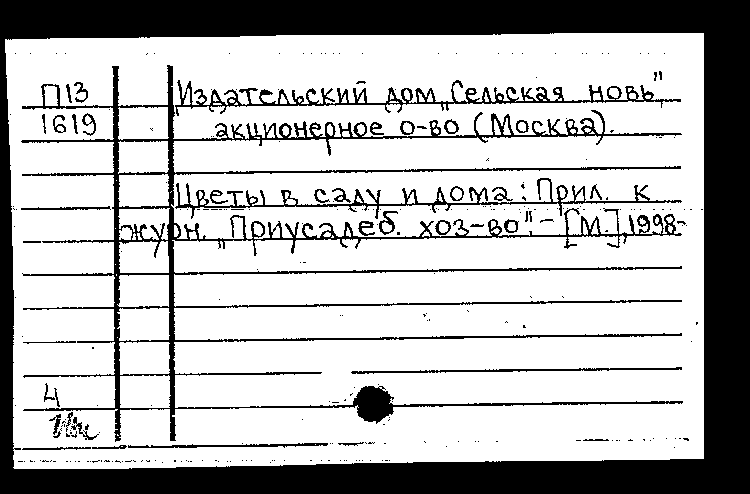 П13 Издательский дом „Сельская новь",
1619 акционерное о-во (Москва).
Цветы в саду и дома: Прил. к
журн. „Приусадеб. хоз-во". – [М.], 1998-
4